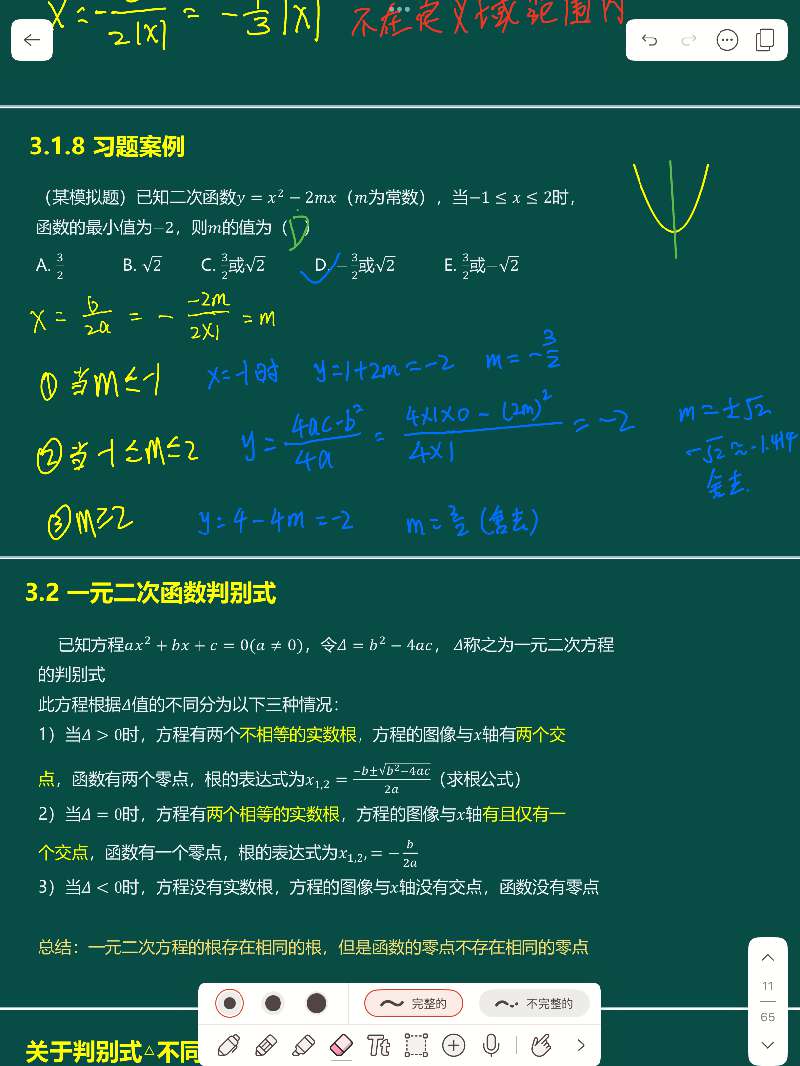 X = - / 2|X| = - 1/3|X| 不在定义域范围内
3.1.8 习题案例
（某模拟题）已知二次函数y = x² − 2mx（m为常数），当−1 ≤ x ≤ 2时，
函数的最小值为−2，则m的值为（D）
A. 3/2 B. √2 C. 3/2或√2 D. −3/2或√2 E. 3/2或−√2
X = b/2a = - -2m/2X1 = m
① 当m ≤ -1 x=-1时 y=1+2m=-2 m=-3/2
② 当-1≤m≤2 y= 4ac-b²/4a = 4X1X0-(2m)²/4X1 = -2 m=±√2
-√2≈-1.414
舍去.
③ m≥2 y=4-4m=-2 m=3/2 (舍去)
3.2 一元二次函数判别式
已知方程ax² + bx + c = 0(a ≠ 0)，令Δ = b² − 4ac， Δ称之为一元二次方程
的判别式
此方程根据Δ值的不同分为以下三种情况：
1）当Δ > 0时，方程有两个不相等的实数根，方程的图像与x轴有两个交
点，函数有两个零点，根的表达式为x₁,₂ = −b±√b²−4ac/2a（求根公式）
2）当Δ = 0时，方程有两个相等的实数根，方程的图像与x轴有且仅有一
个交点，函数有一个零点，根的表达式为x₁,₂, = − b/2a
3）当Δ < 0时，方程没有实数根，方程的图像与x轴没有交点，函数没有零点
总结：一元二次方程的根存在相同的根，但是函数的零点不存在相同的零点
11
65
完整的 不完整的
Tt
关于判别式△不同